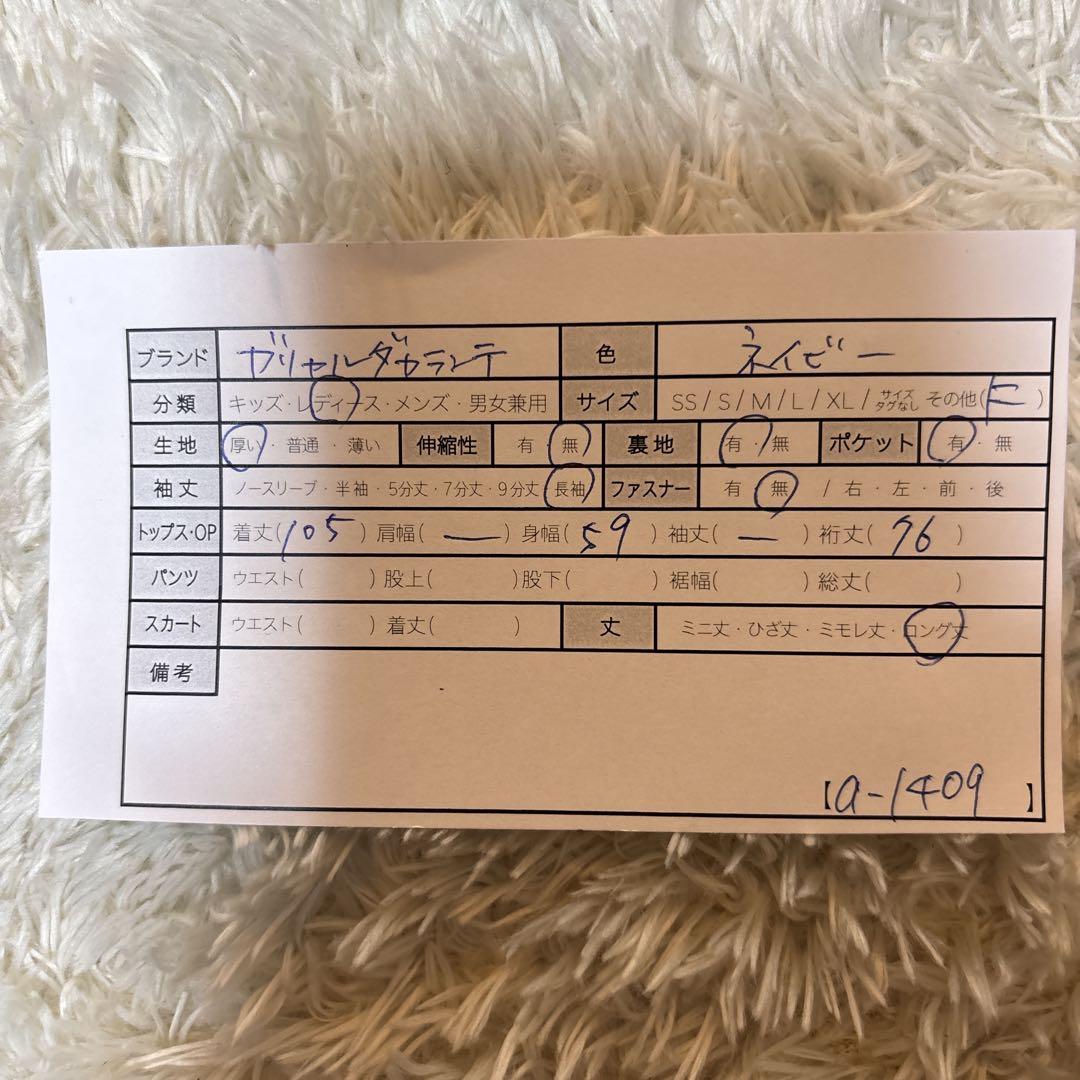 ブランド ガリャルダガランテ 色 ネイビー
分類 キッズ・レディース・メンズ・男女兼用 サイズ SS / S / M / L / XL / サイズタグなし その他( )
生地 厚い・普通・薄い 伸縮性 有・無 裏地 有・無 ポケット 有・無
袖丈 ノースリーブ・半袖・5分丈・7分丈・9分丈・長袖 ファスナー 有・無 / 右・左・前・後
トップス・OP 着丈(105) 肩幅(ー) 身幅(59) 袖丈(ー) 裄丈(76)
パンツ ウエスト( ) 股上( ) 股下( ) 裾幅( ) 総丈( )
スカート ウエスト( ) 着丈( ) 丈 ミニ丈・ひざ丈・ミモレ丈・ロング丈
備考
【a-1409】